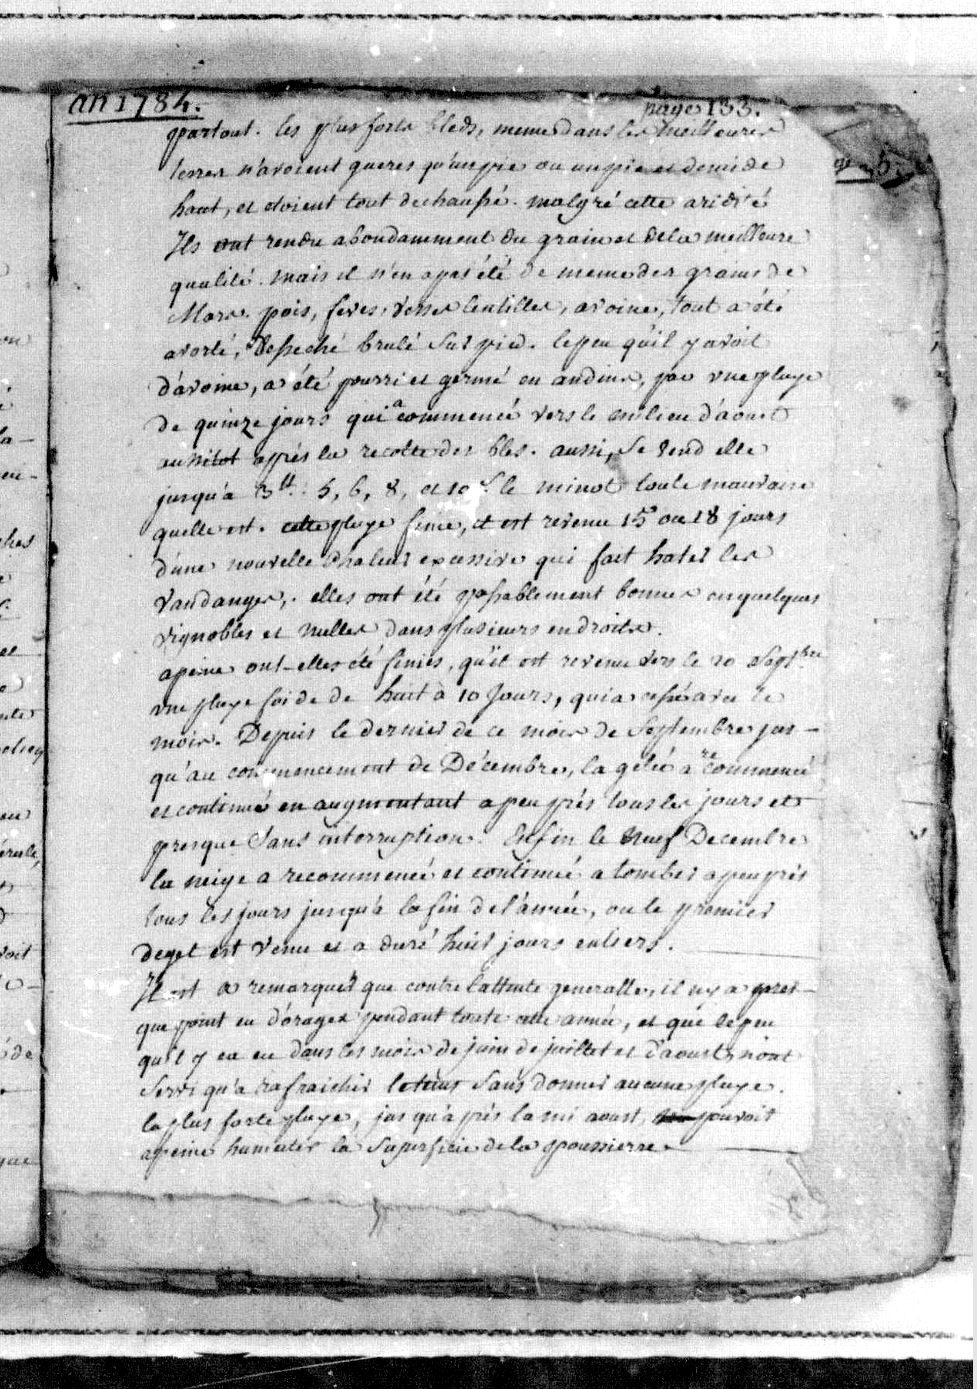 an 1784.
page 133.
partout. les plus forts bleds, meme dans les meilleures
terres n'avoient gueres qu'un pié ou un pié et demi de
haut, et etoient tout dechaussé. malgré cette aridité
Ils ont rendu abondamment du grain et de la meilleure
qualité. mais il n'en a pas été de meme des grains de
Mars. pois, feves, vesses lentilles, avoine, tout a été
avorté, desseché brulé sur pied. le peu qu'il y avoit
d'avoine, a été pourri et germé en andins, par vne pluye
de quinze jours qui a commencé vers le milieu d'aoust
aussitot apprés la recolte des bles. aussi, se vend elle
jusqu'a 3tt. 5, 6, 8, et 10 s. le minot toute mauvaise
quelle est. cette pluye finie, il est revenu 15 ou 18 jours
d'une nouvelle chaleur excessive qui fait hater les
vandanges,. elles ont été passablement bonnes en quelques
vignobles et nulles dans plusieurs endroits.
apeine ont-elles été finies, qu'il est revenu vers le 20 Septbre
vne pluye foide de huit à 10 Jours, qui a cessé avec le
mois. Depuis le dernier de ce mois de Septembre jus-
qu'au commencement de Décembre, la gelée a recommencé
et continué en augmentant a peu prés tous les jours et
presque Sans interruption. Enfin le neuf Decembre
la neige a recommencé et continué a tomber apeuprés
tous les jours jusqu'à la fin de l'année, ou le premier
degel est venu et a duré huit jours entiers.
Il est a remarquer que contre l'attente generalle, il n'y a pres-
que point eu d'orages pendant toute cette année, et que le peu
qu'il y en eu dans les mois de juin de juillet et d'aoust, n'ont
servi qu'a rafraichir le tems sans donner aucune pluye.
la plus forte pluye, jusqu'aprés la mi aoust, pouvoit
apeine humecter la superficie de la poussierre.